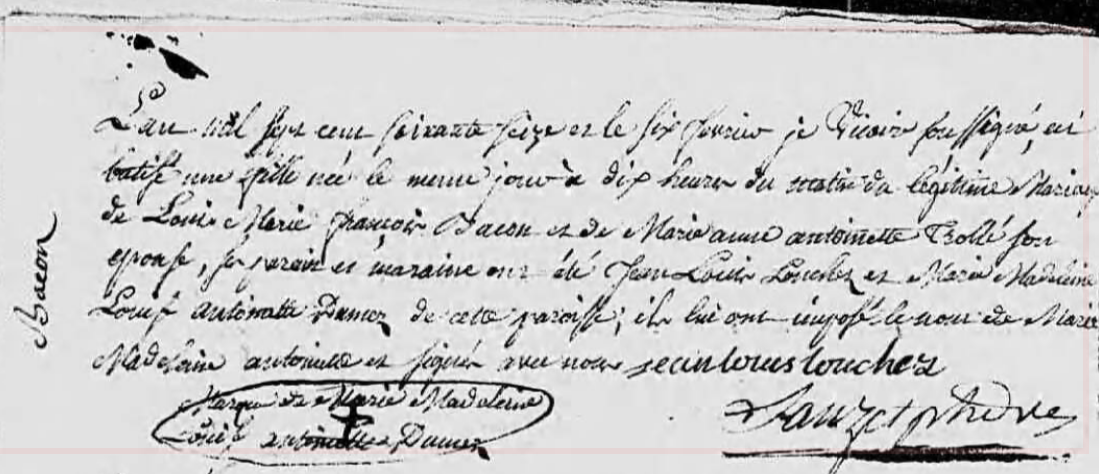 Bacon
L'an mil sept cent soixante seize et le six fevrier je Vicaire soussigné, ai
batisé une fille née le meme jour à dix heures du matin du légitime Mariage
de Louis Marie françois Bacon et de Marie anne antoinette Trollé son
epouse, ses parain et maraine ont été Jean Louis Louchez et Marie Madeleine
Louise antoinette Dumez de cette paroisse, ils lui ont imposé le nom de Marie
Madelaine antoinette et signés avec nous jean louis louchez
Marque de Marie Madeleine
Louise antoinette Dumez